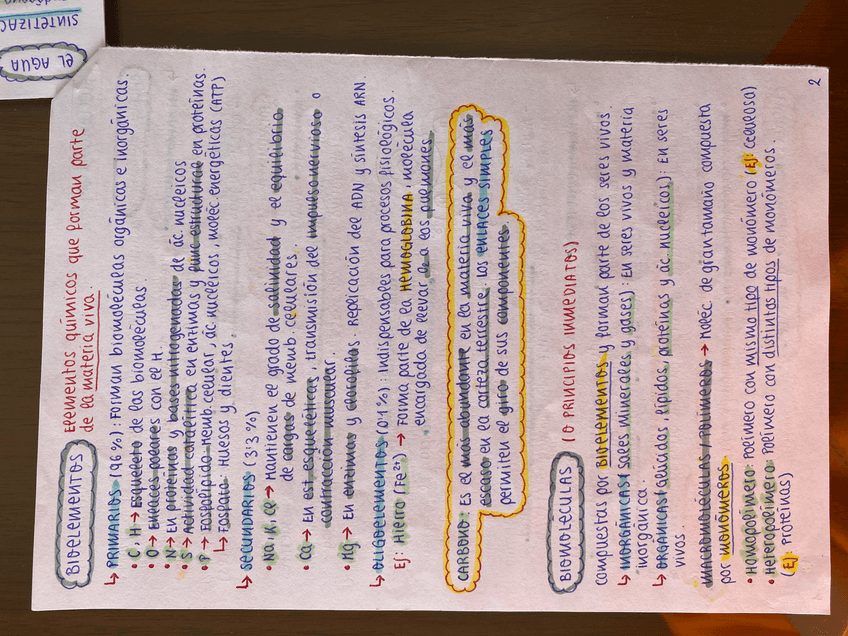 BIOELEMENTOS Elementos químicos que forman parte
de la materia viva.
↳ PRIMARIOS (96%): Forman biomoléculas orgánicas e inorgánicas.
• C, H → Esqueleto de las biomoléculas
• O → Enlaces polares con el H.
• N → En proteínas y bases nitrogenadas de ác. nucleicos
• S → Actividad catalítica en enzimas y func estructural en proteínas.
• P → Fosfolípido memb. celular, ác nucleicos, moléc energéticas (ATP)
↳ Fosfato: huesos y dientes.
↳ SECUNDARIOS (3'3%)
• Na, K, Cl → Mantienen el grado de salinidad y el equilibrio
de cargas de memb. celulares.
• Ca → En est esqueléticas, transmisión del impulso nervioso o
contracción muscular.
• Mg → En enzimas y clorofilas. Replicación del ADN y síntesis ARN.
↳ OLIGOELEMENTOS (0'1%): Indispensables para procesos fisiológicos.
Ej: Hierro (Fe²⁺) → Forma parte de la HEMOGLOBINA, molécula
encargada de llevar a los pulmones.
CARBONO: Es el más abundante en la materia viva y el más
escaso en la corteza terrestre. Los ENLACES SIMPLES
permiten el giro de sus componentes.
BIOMOLÉCULAS (O PRINCIPIOS INMEDIATOS)
compuestas por BIOELEMENTOS y forman parte de los seres vivos.
↳ INORGÁNICAS (sales minerales y gases): En seres vivos y materia
inorgánica.
↳ ORGÁNICAS (glúcidos, lípidos, proteínas y ác nucleicos): En seres
vivos.
MACROMOLÉCULAS / POLÍMEROS → Moléc de gran tamaño compuesta
por monómeros.
• Homopolímero: Polímero con mismo tipo de monómero (Ej: Celulosa)
• Heteropolímero: Polímero con distintos tipos de monómeros.
(Ej: Proteínas)
2
EL AGUA
SINTETIZAC